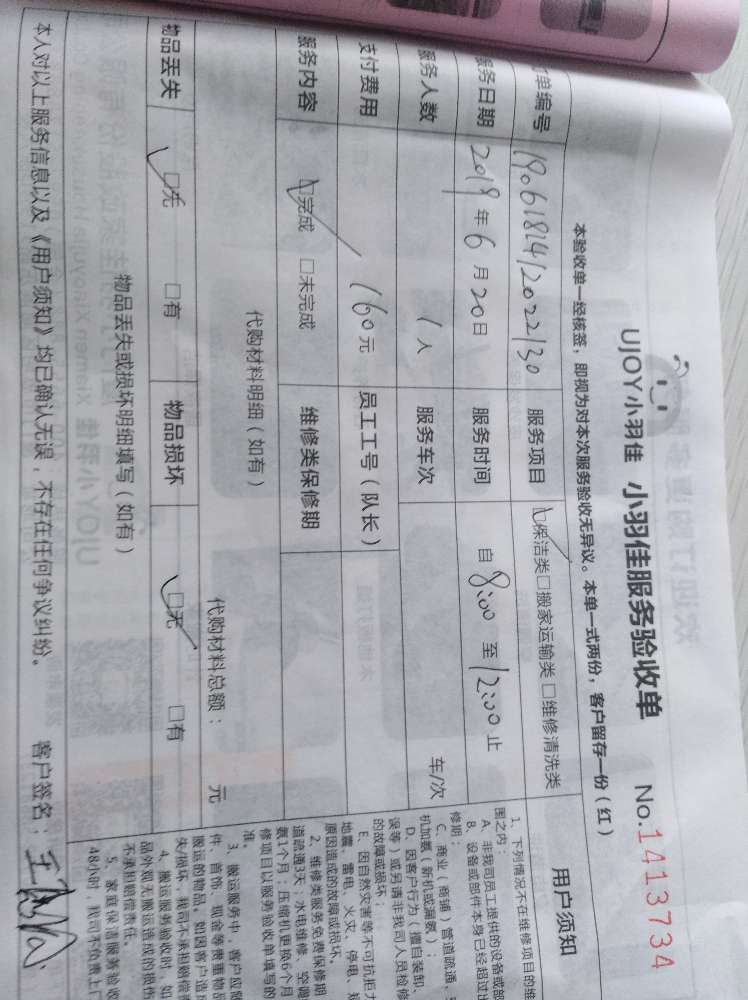 UJOY小羽佳 小羽佳服务验收单 No.1413734
本验收单一经核签，即视为对本次服务验收无异议。本单一式两份，客户留存一份（红）
单编号 1906181412022130 服务项目 ☑保洁类□搬家运输类□维修清洗类
服务日期 2019年6月20日 服务时间 自8:00至12:00止
服务人数 1人 服务车次 车/次
支付费用 160元 员工工号（队长）
服务内容 ☑完成 □未完成 维修类保修期
代购材料明细（如有） 代购材料总额： 元
物品丢失 ☑无 □有 物品损坏 ☑无 □有
物品丢失或损坏明细填写（如有）
本人对以上服务信息以及《用户须知》均已确认无误，不存在任何争议纠纷。 客户签名：王
用户须知
1、下列情况不在维修项目的维
围之内：
A、非我司员工提供的设备或部
B、设备或部件本身已经超过
修期；
C、商业（商铺）管道疏通、
机加氨（新机或漏氨）；
D、因客户行为（擅自装卸、
误等）或另请非我司人员检修
的故障或损坏；
E、因自然灾害等不可抗拒
地震、雷电、火灾、停电、
原因造成的故障或损坏。
2、维修类服务免费保修期
道疏通3天；水电维修、空调
氨1个月；压缩机更换6个月
修项目以服务验收单填写的
准。
3、搬运服务中，客户应
件、首饰、现金等贵重物品
搬运的物品，如因客户造
失/损坏，我司不承担赔偿
4、搬运服务验收时，如
品外观无搬运造成的损伤
不承担赔偿责任。
5、家庭保洁服务验收
48小时，我司不负责上